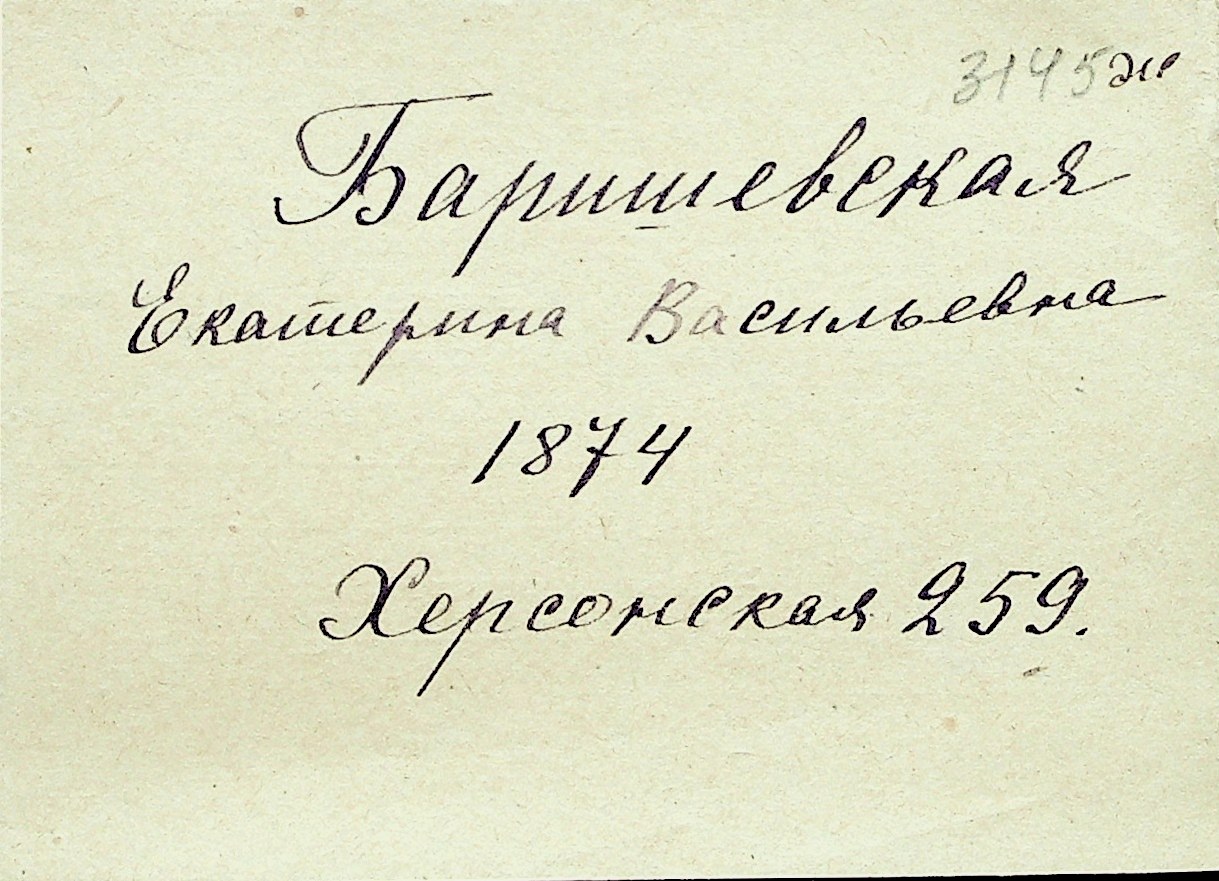 3145 ж
Баришевская
Екатерина Васильевна
1874
Херсонская 259.